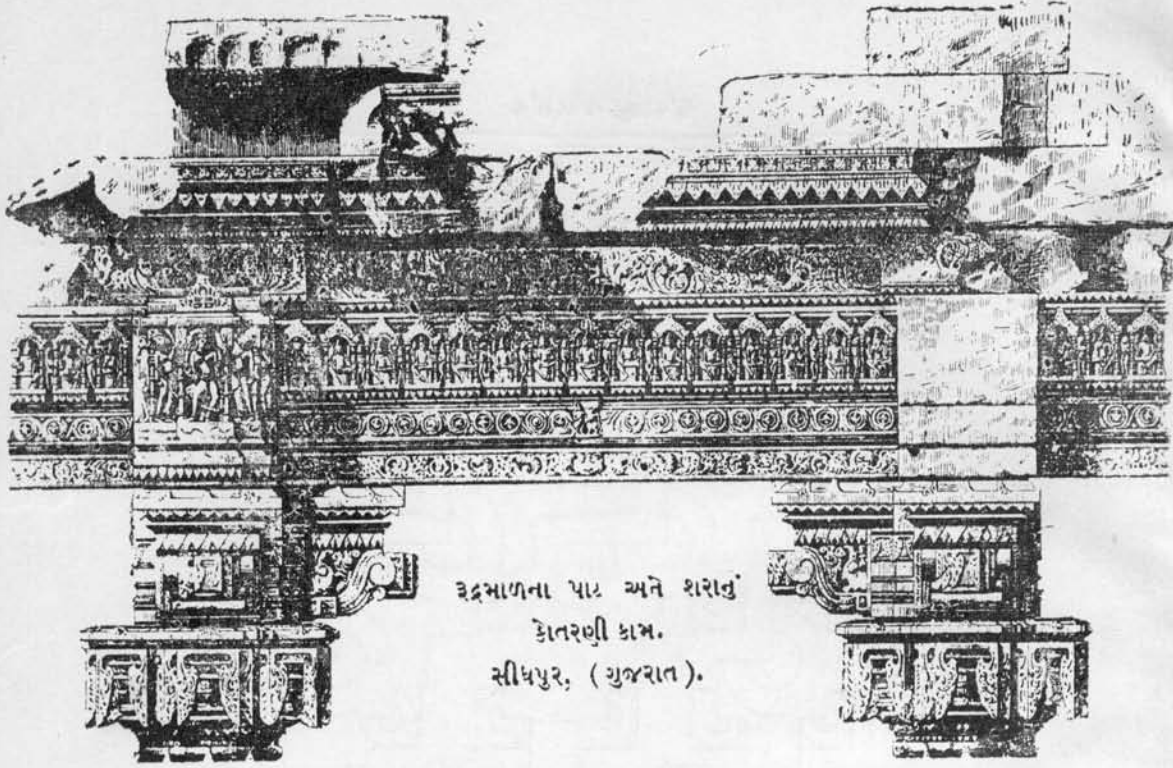 રૂદ્રમાળના પાટ અને શરાનું
કોતરણી કામ.
સીધપુર, (ગુજરાત).